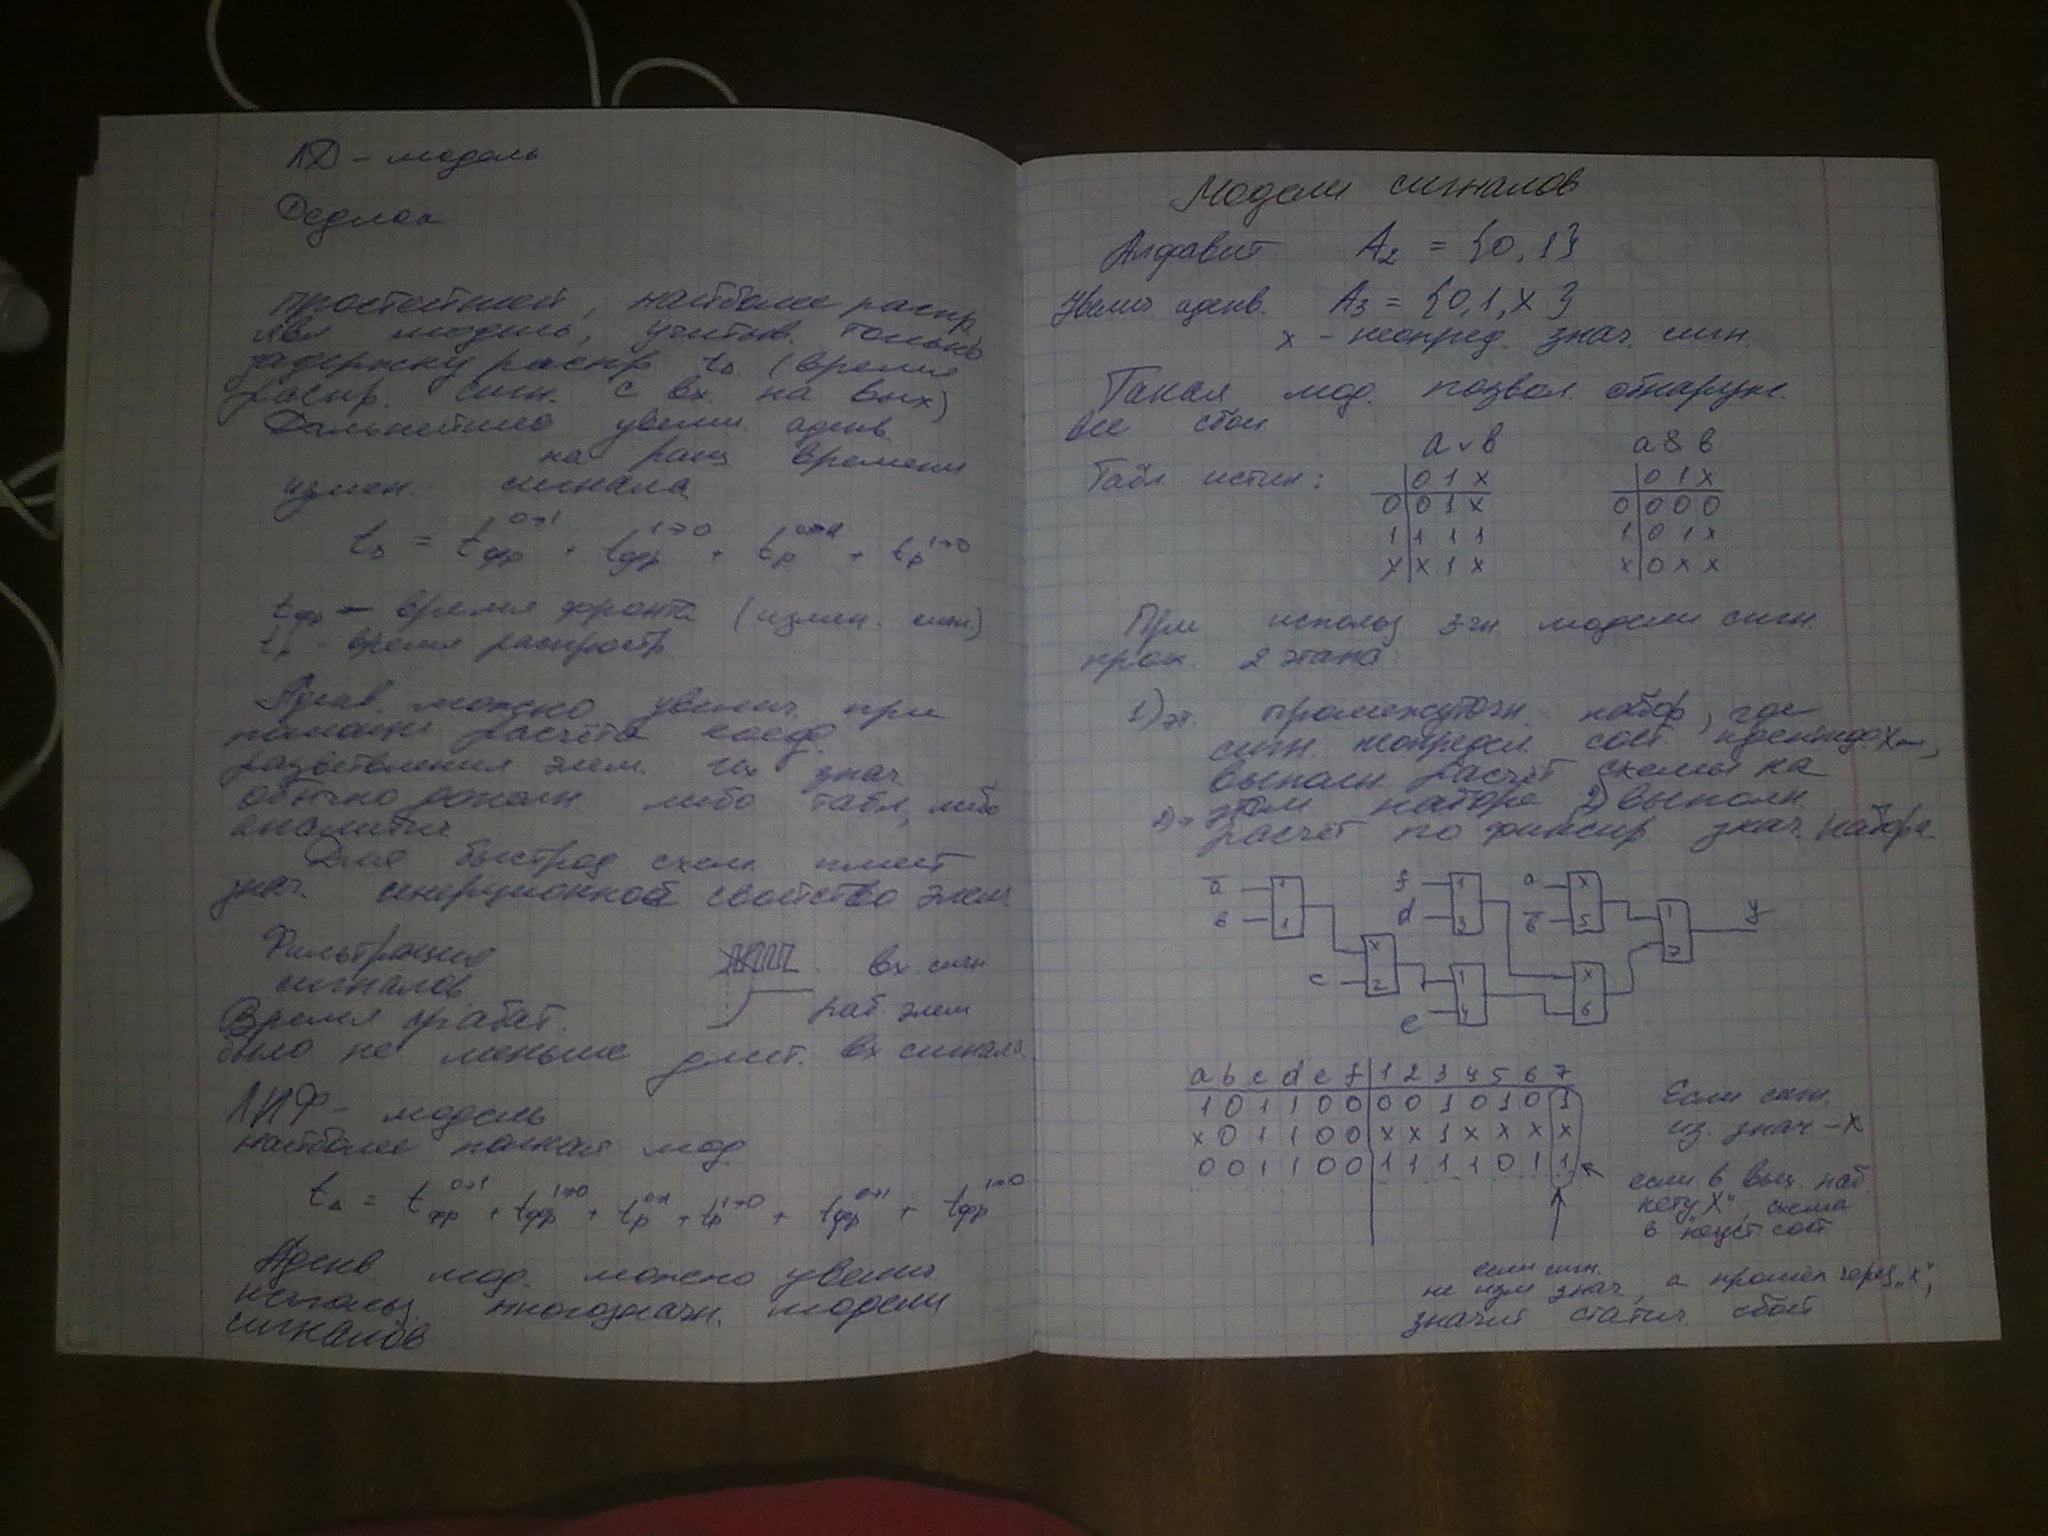 ЛД - модель
Дедлок
простейшей, наиболее распр
явл модель, учитыв. только
задержку распр tΔ (время
распр. сигн. с вх. на вых)
Дальнейшее увелич. адекв.
на времени
измен. сигнала
tΔ = tфр^0→1 + tфр^1→0 + tр^0→1 + tр^1→0
tфр - время фронта (измен. сигн)
tр - время распростр
Адекв. можно увелич. при
помощи расчёта коэф.
разветвления элем. Их знач
обычно либо табл, либо
аналитич
Для быстрод схем имеет
знач. инерционной свойство элем.
Фильтрация
сигналов
вх сигн
раб. элем
Время срабат.
было не меньше длит. вх сигнала
ЛИФ - модель
наиболее полная мод
tΔ = tфр^0→1 + tфр^1→0 + tр^0→1 + tр^1→0 + tфр^0→1 + tфр^1→0
Адекв. мод. можно увелич.
использ. многозначн. модели
сигналов
Модели сигналов
Алфавит A2 = {0, 1}
Увелич адекв. A3 = {0,1,X}
x - неопред. знач. сигн.
Такая мод. позвол. обнаруж.
все сбои
a v b a & b
Табл истин:
0 1 x 0 1 x
0 0 1 x 0 0 0 0
1 1 1 1 1 0 1 x
x x 1 x x 0 x x
При использ 3-зн. модели сигн.
прои. 2 этапа
1) эт. промежуточн. набор, где
сигн. неопредел. сост.
выполн. расчёт схемы на
этом наборе 2) выполн.
расчет по фиксир знач. набора
a̅ 1 f 1 a x
в 1 d 3 b̅ 5 1 y
x 7
c 2 1 x
e 4 6
a b c d e f 1 2 3 4 5 6 7
1 0 1 1 0 0 0 0 1 0 1 0 1
x 0 1 1 0 0 x x 1 x x x x
0 0 1 1 0 0 1 1 1 1 0 1 1
Если сигн.
из. знач - X
если в вых. наб
нету "X", схема
в неуст. сост.
если сигн.
не изм знач, а прошел через "x",
значит статич. сбой